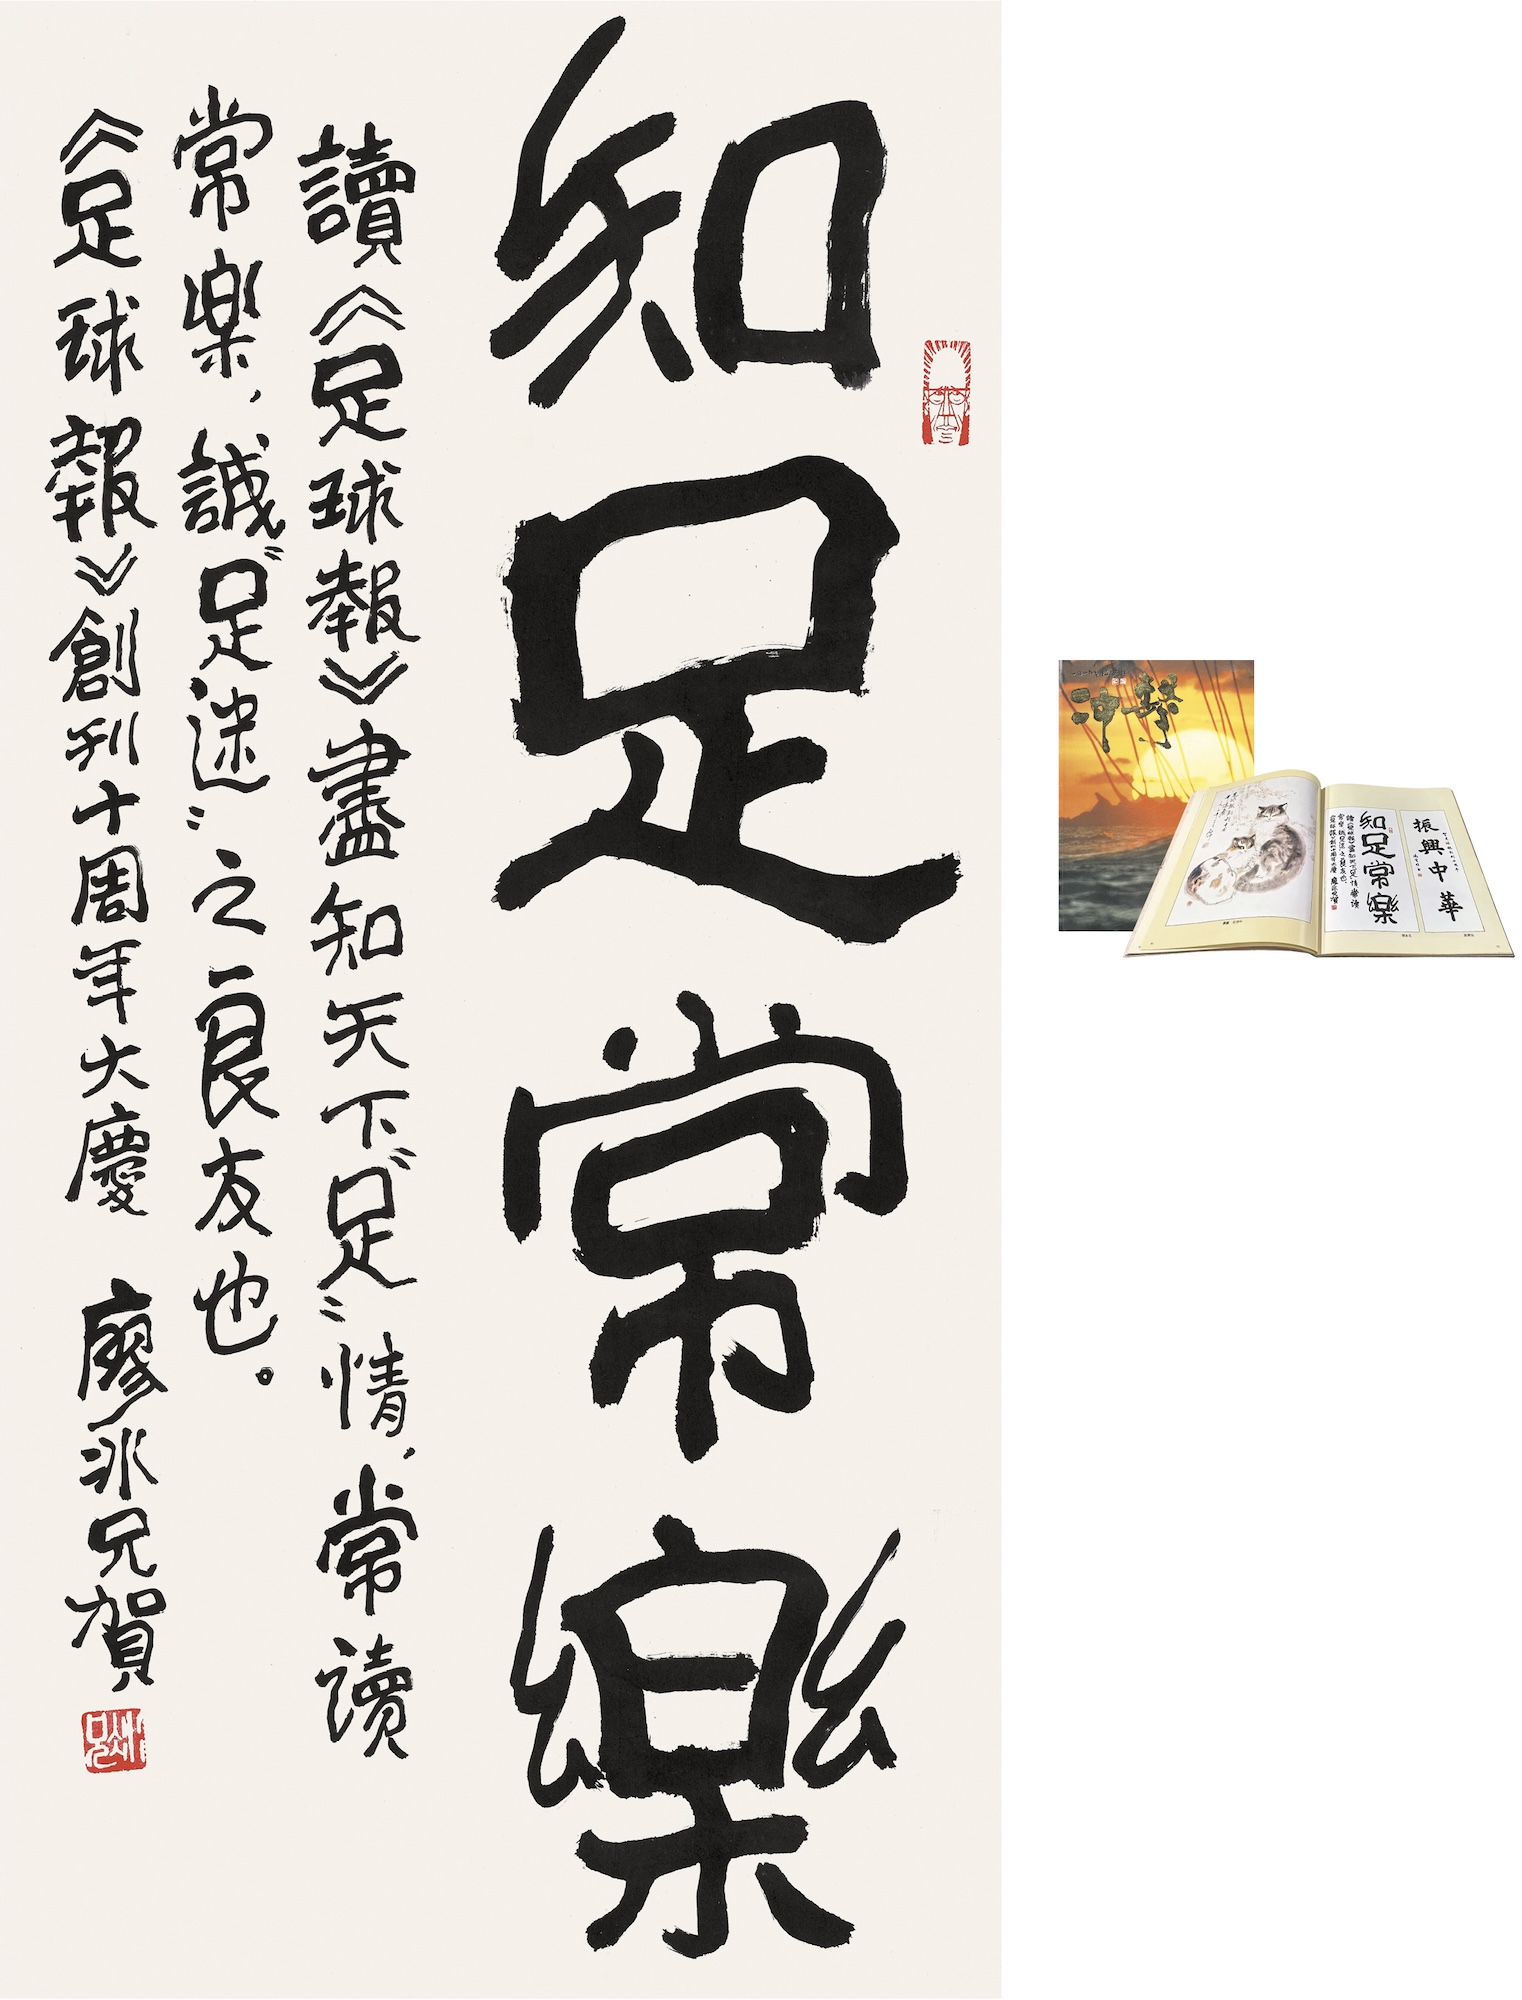 知足常樂
讀《足球報》盡知天下"足"情，常讀
常楽，誠"足迷"之良友也。
《足球報》創刊十周年大慶 廖冰兄賀
冰兄
冲擊
振興中華
知足常樂